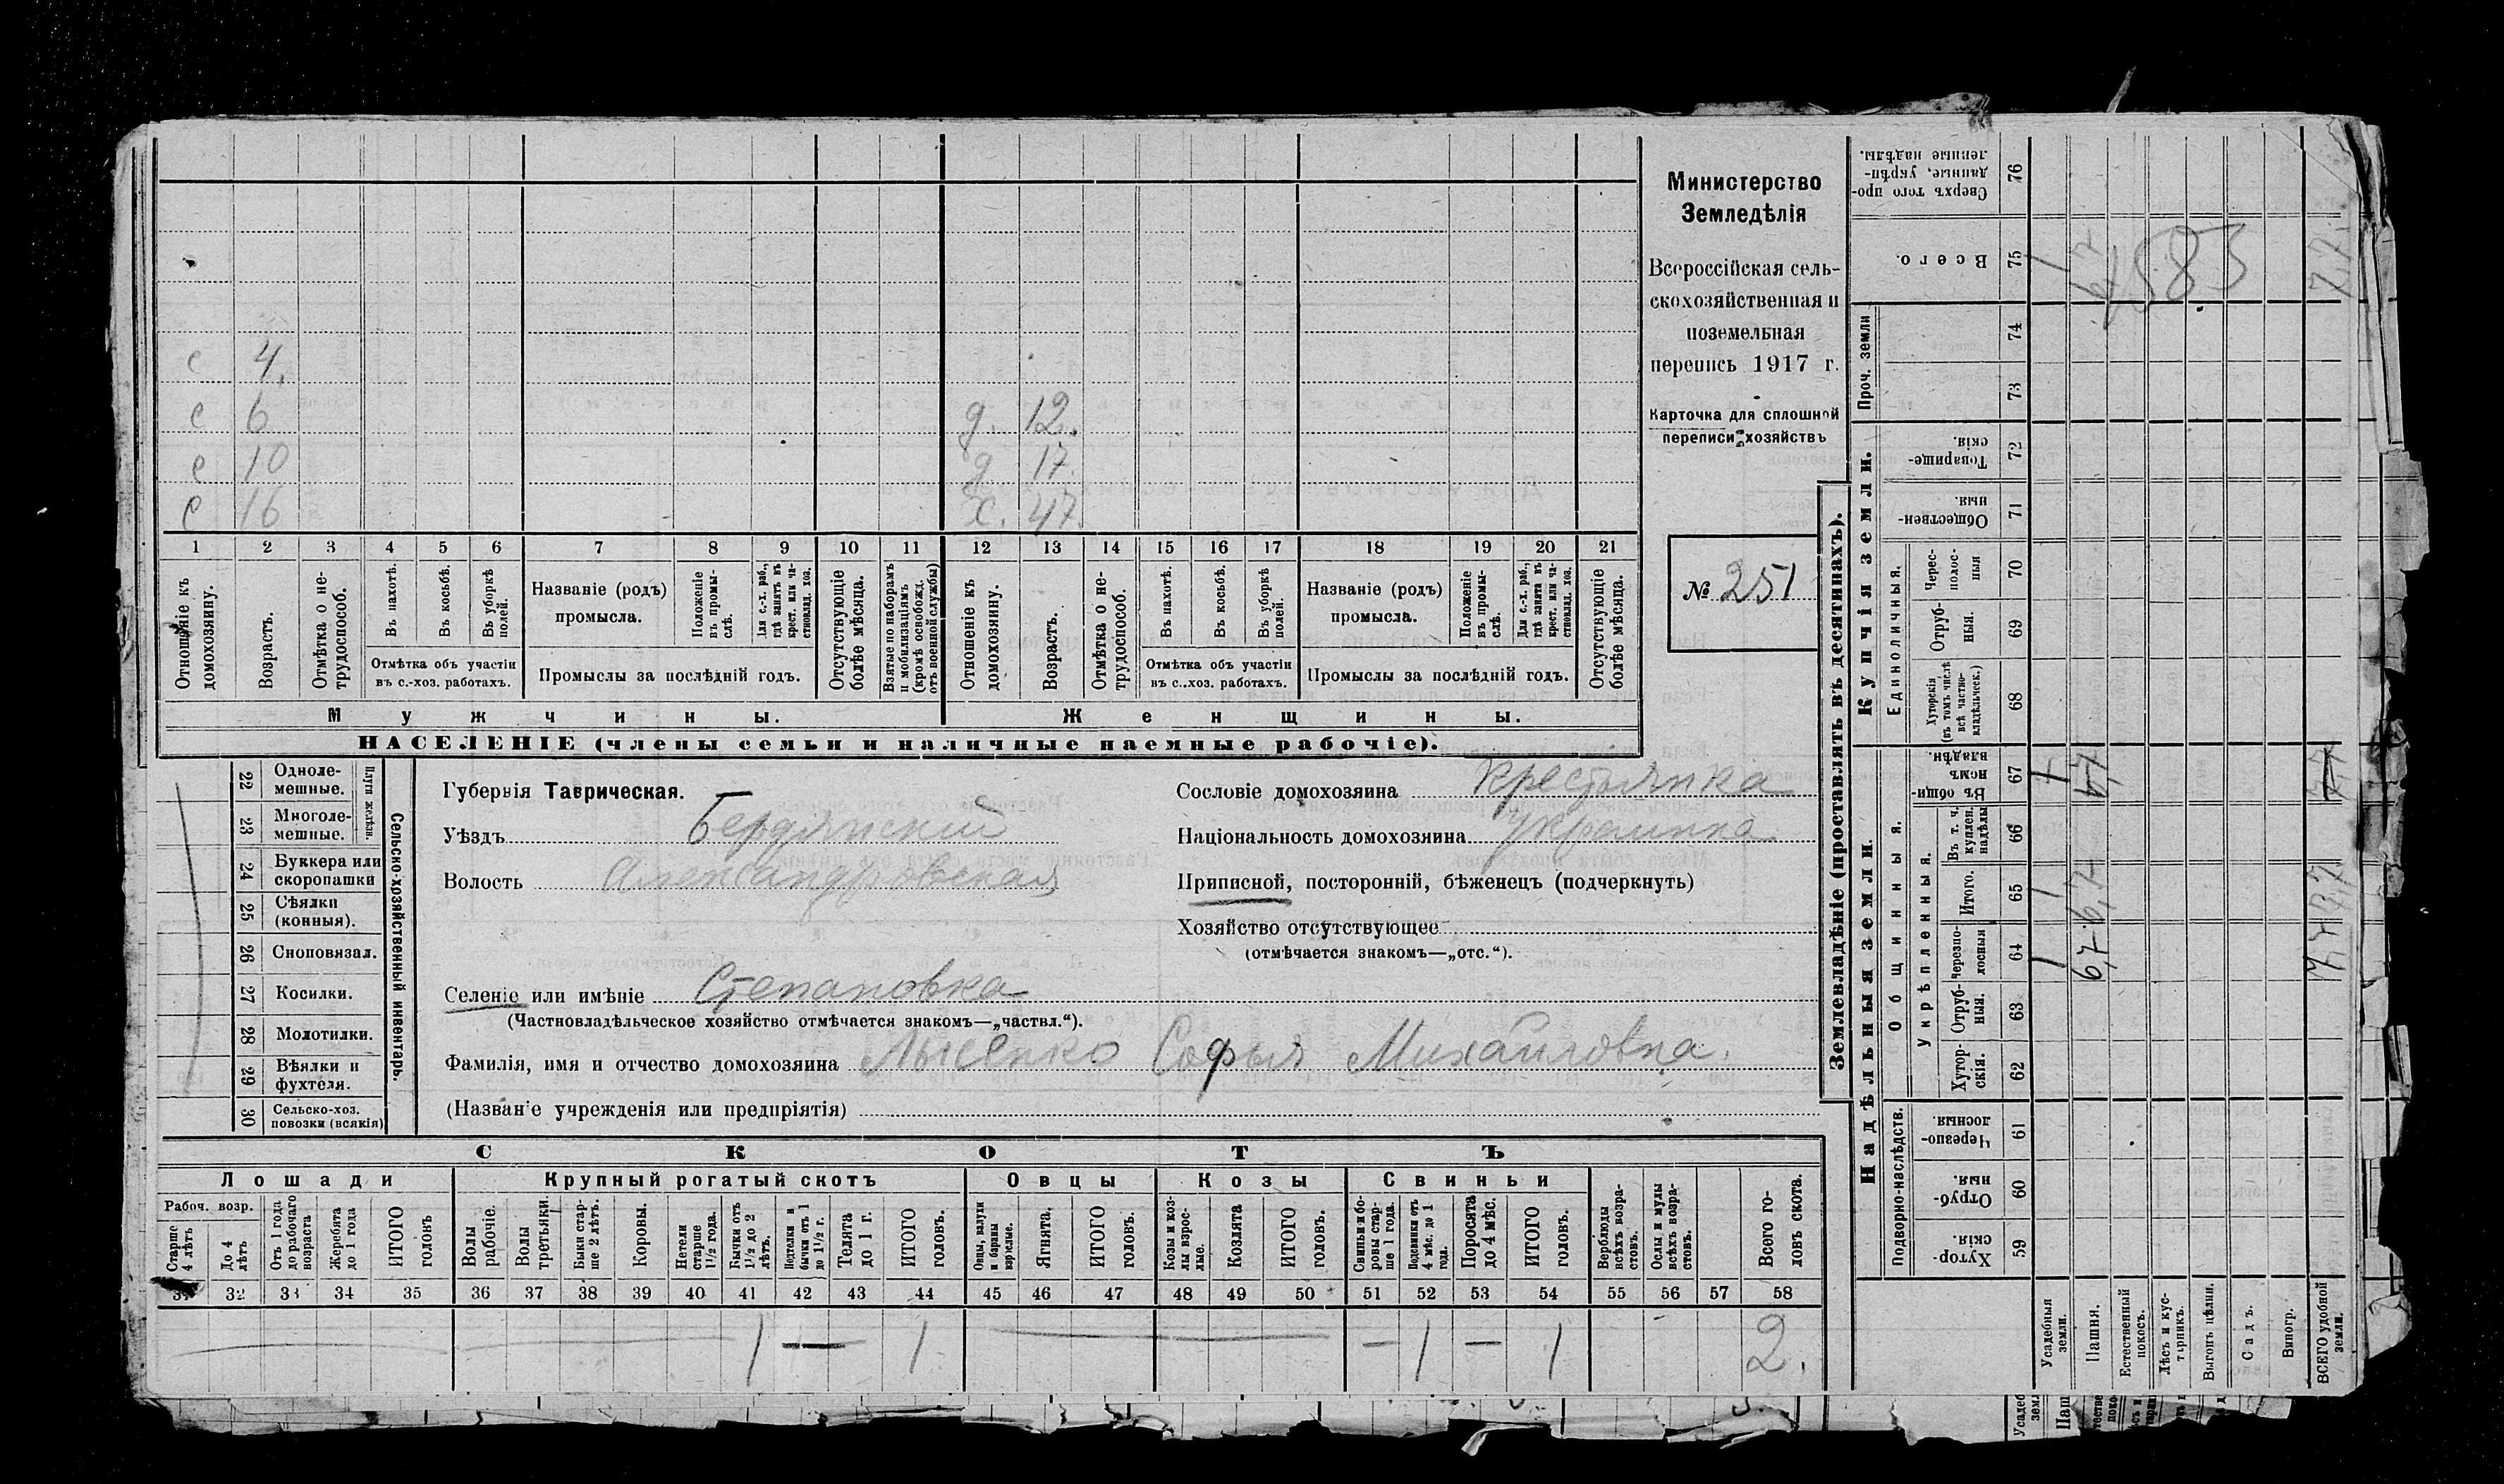 Министерство
Земледѣлія
Всероссійская сель-
скохозяйственная и
поземельная
перепись 1917 г.
Карточка для сплошной
переписи хозяйствъ
№ 251
с 4.
с 6 д. 12.
с 10 д 17.
с 16 х. 47.
1 2 3 4 5 6 7 8 9 10 11 12 13 14 15 16 17 18 19 20 21
Отношеніе къ домохозяину.
Возрастъ.
Отмѣтка о не-трудоспособ.
Въ пахотѣ.
Въ косьбѣ.
Въ уборкѣ полей.
Отмѣтка объ участіи
въ с.-хоз. работахъ.
Названіе (родъ)
промысла.
Положеніе въ промы-слѣ.
Для с.-х. раб., гдѣ занятъ въ крест. или ча-стновлад. хоз.
Промыслы за послѣдній годъ.
Отсутствующіе болѣе мѣсяца.
Взятые по наборамъ и мобилизаціямъ (кромѣ освобожд. отъ военной службы)
Отношеніе къ домохозяину.
Возрастъ.
Отмѣтка о не-трудоспособ.
Въ пахотѣ.
Въ косьбѣ.
Въ уборкѣ полей.
Отмѣтка объ участіи
въ с.-хоз. работахъ.
Названіе (родъ)
промысла.
Положеніе въ промы-слѣ.
Для с.-х. раб., гдѣ занята въ крест. или ча-стновлад. хоз.
Промыслы за послѣдній годъ.
Отсутствующіе болѣе мѣсяца.
Мужчины.
Женщины.
НАСЕЛЕНІЕ (члены семьи и наличные наемные рабочіе).
Сельско-хозяйственный инвентарь.
Плуги желѣзн.
22 Одноле-мешные.
23 Многоле-мешные.
24 Буккера или скоропашки
25 Сѣялки (конныя).
26 Сноповязал.
27 Косилки.
28 Молотилки.
29 Вѣялки и фухтеля.
30 Сельско-хоз. повозки (всякія)
Губернія Таврическая.
Уѣздъ Бердянскій
Волость Александровская
Селеніе или имѣніе Степановка
(Частновладѣльческое хозяйство отмѣчается знакомъ—„частвл.“).
Фамилія, имя и отчество домохозяина Лысенко Софья Михайловна.
(Названіе учрежденія или предпріятія)
Сословіе домохозяина крестьянка
Національность домохозяина украинка
Приписной, посторонній, бѣженецъ (подчеркнуть)
Хозяйство отсутствующее
(отмѣчается знакомъ—„отс.“).
СКОТЪ
Лошади Крупный рогатый скотъ Овцы Козы Свиньи
Рабоч. возр.
Старше 4 лѣтъ
До 4 лѣтъ
Отъ 1 года до рабочаго возраста
Жеребята до 1 года
ИТОГО головъ
Волы рабочіе.
Волы третьяки.
Быки стар-ше 2 лѣтъ.
Коровы.
Нетели старше 1½ года.
Бычки отъ 1½ до 2 лѣтъ.
Подтелки и бычки отъ 1 до 1½ г.
Телята до 1 г.
ИТОГО головъ.
Овцы, валухи и бараны взрослые.
Ягнята.
ИТОГО головъ.
Козы и коз-лы взрос-лые.
Козлята
ИТОГО головъ.
Свиньи и бо-ровы стар-ше 1 года.
Подсвинки отъ 4 мѣс. до 1 года.
Поросята до 4 мѣс.
ИТОГО головъ.
Верблюды всѣхъ возра-стовъ.
Ослы и мулы всѣхъ возра-стовъ.
Всего го-ловъ скота.
31 32 33 34 35 36 37 38 39 40 41 42 43 44 45 46 47 48 49 50 51 52 53 54 55 56 57 58
1 — 1 — 1 — 1 2.
Землевладѣніе (проставлять въ десятинахъ).
Надѣльныя земли.
Купчія земли.
Проч. земли
Подворно-наслѣдств.
Общинныя.
Укрѣпленныя.
Единоличныя.
59 Хутор-скія.
60 Отруб-ныя.
61 Черезпо-лосныя
62 Хутор-скія.
63 Отруб-ныя.
64 Черезпо-лосныя 1 6,7 7,7
65 Итого. 1 6,7 7,7
66 Въ т. ч. куплен. надѣлы
67 Въ общи-номъ владѣн.
68 Хуторскія (въ томъ числѣ всѣ частно-владѣльческ.)
69 Отруб-ныя.
70 Черес-полос-ныя
71 Обществен-ныя.
72 Товарище-скія.
73
74
75 Всего. 1 6,7 7,7.
4583
76 Сверхъ того про-данные, укрѣп-ленные надѣлы.
Усадебныя земли.
Пашня.
Естественный покосъ.
Лѣсъ и кус-тарникъ.
Выгонъ цѣлин.
Садъ.
Виногр.
ВСЕГО удобной земли.